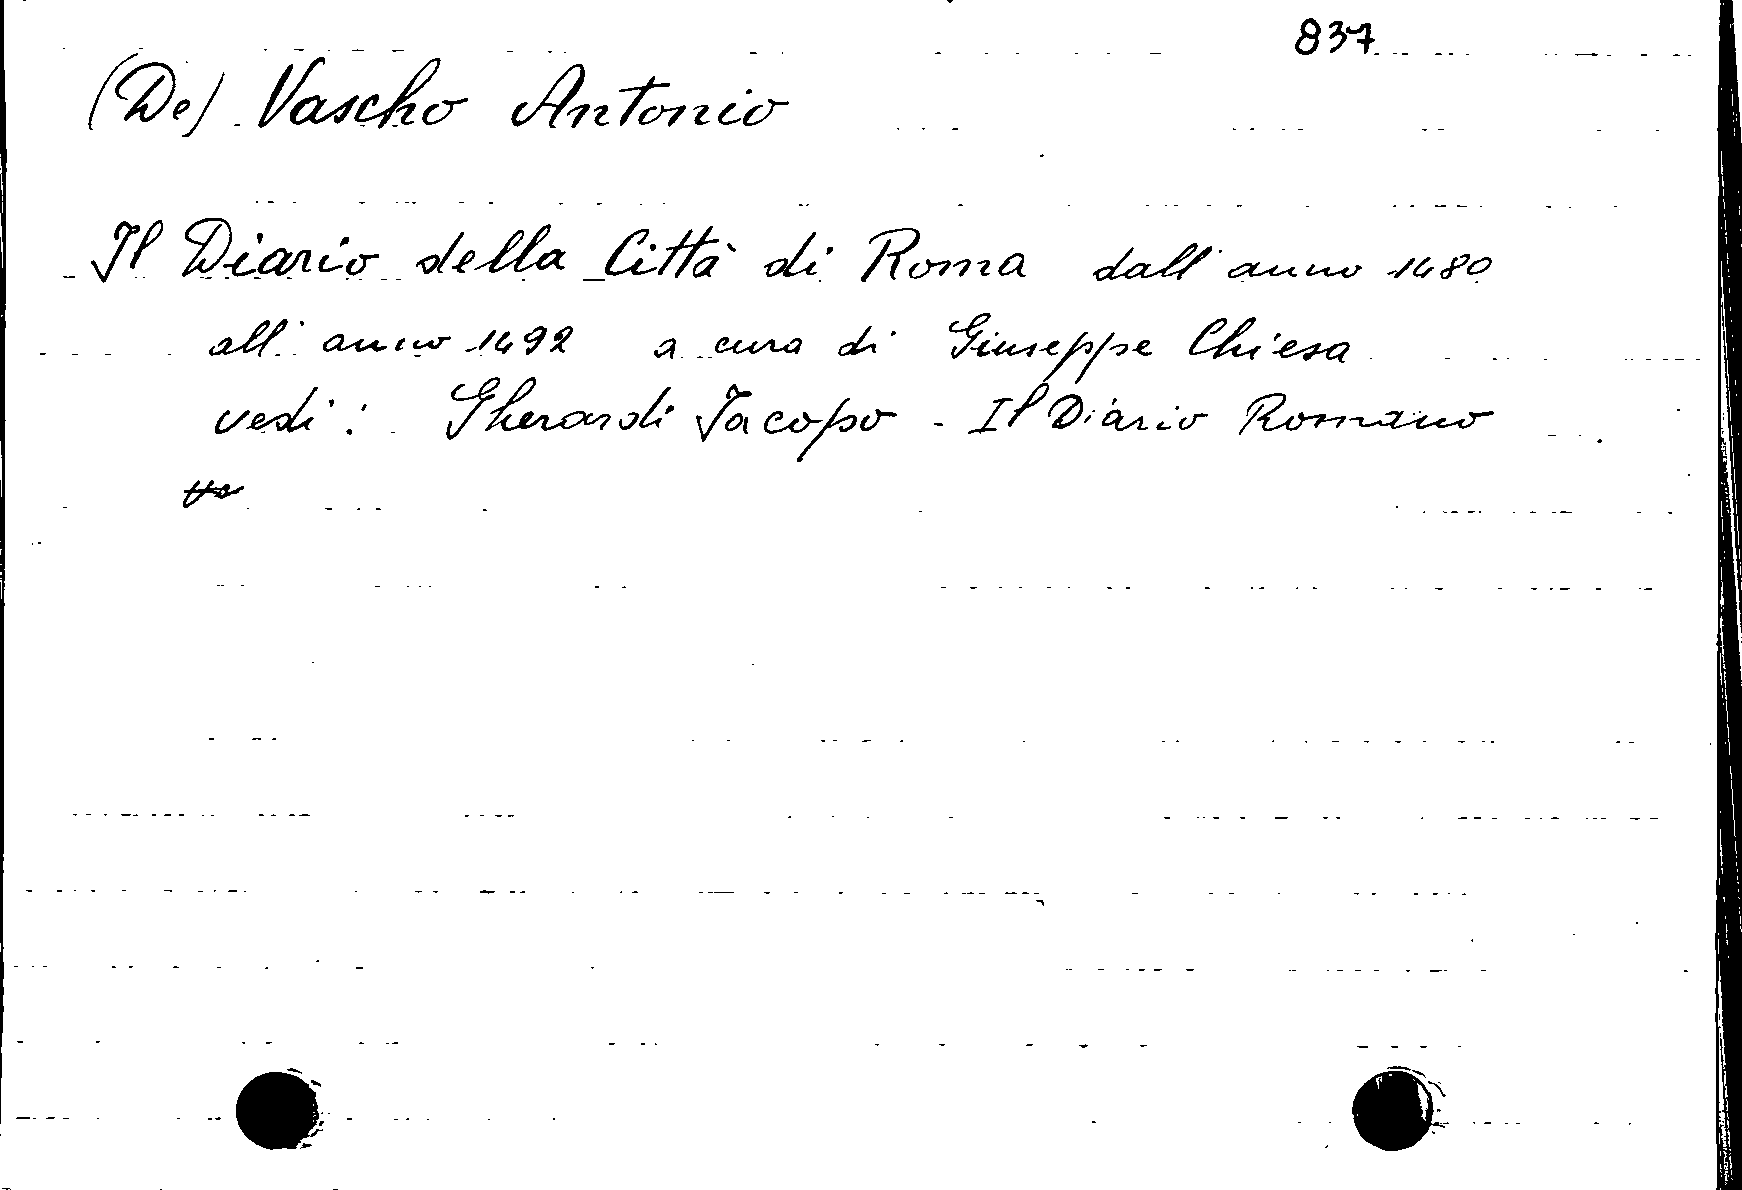 837
(De) Vascho Antonio
Il Diario della Città di Roma dall'anno 1480
all'anno 1492 a cura di Giuseppe Chiesa
vedi: Gherardi Jacopo - Il Diario Romano